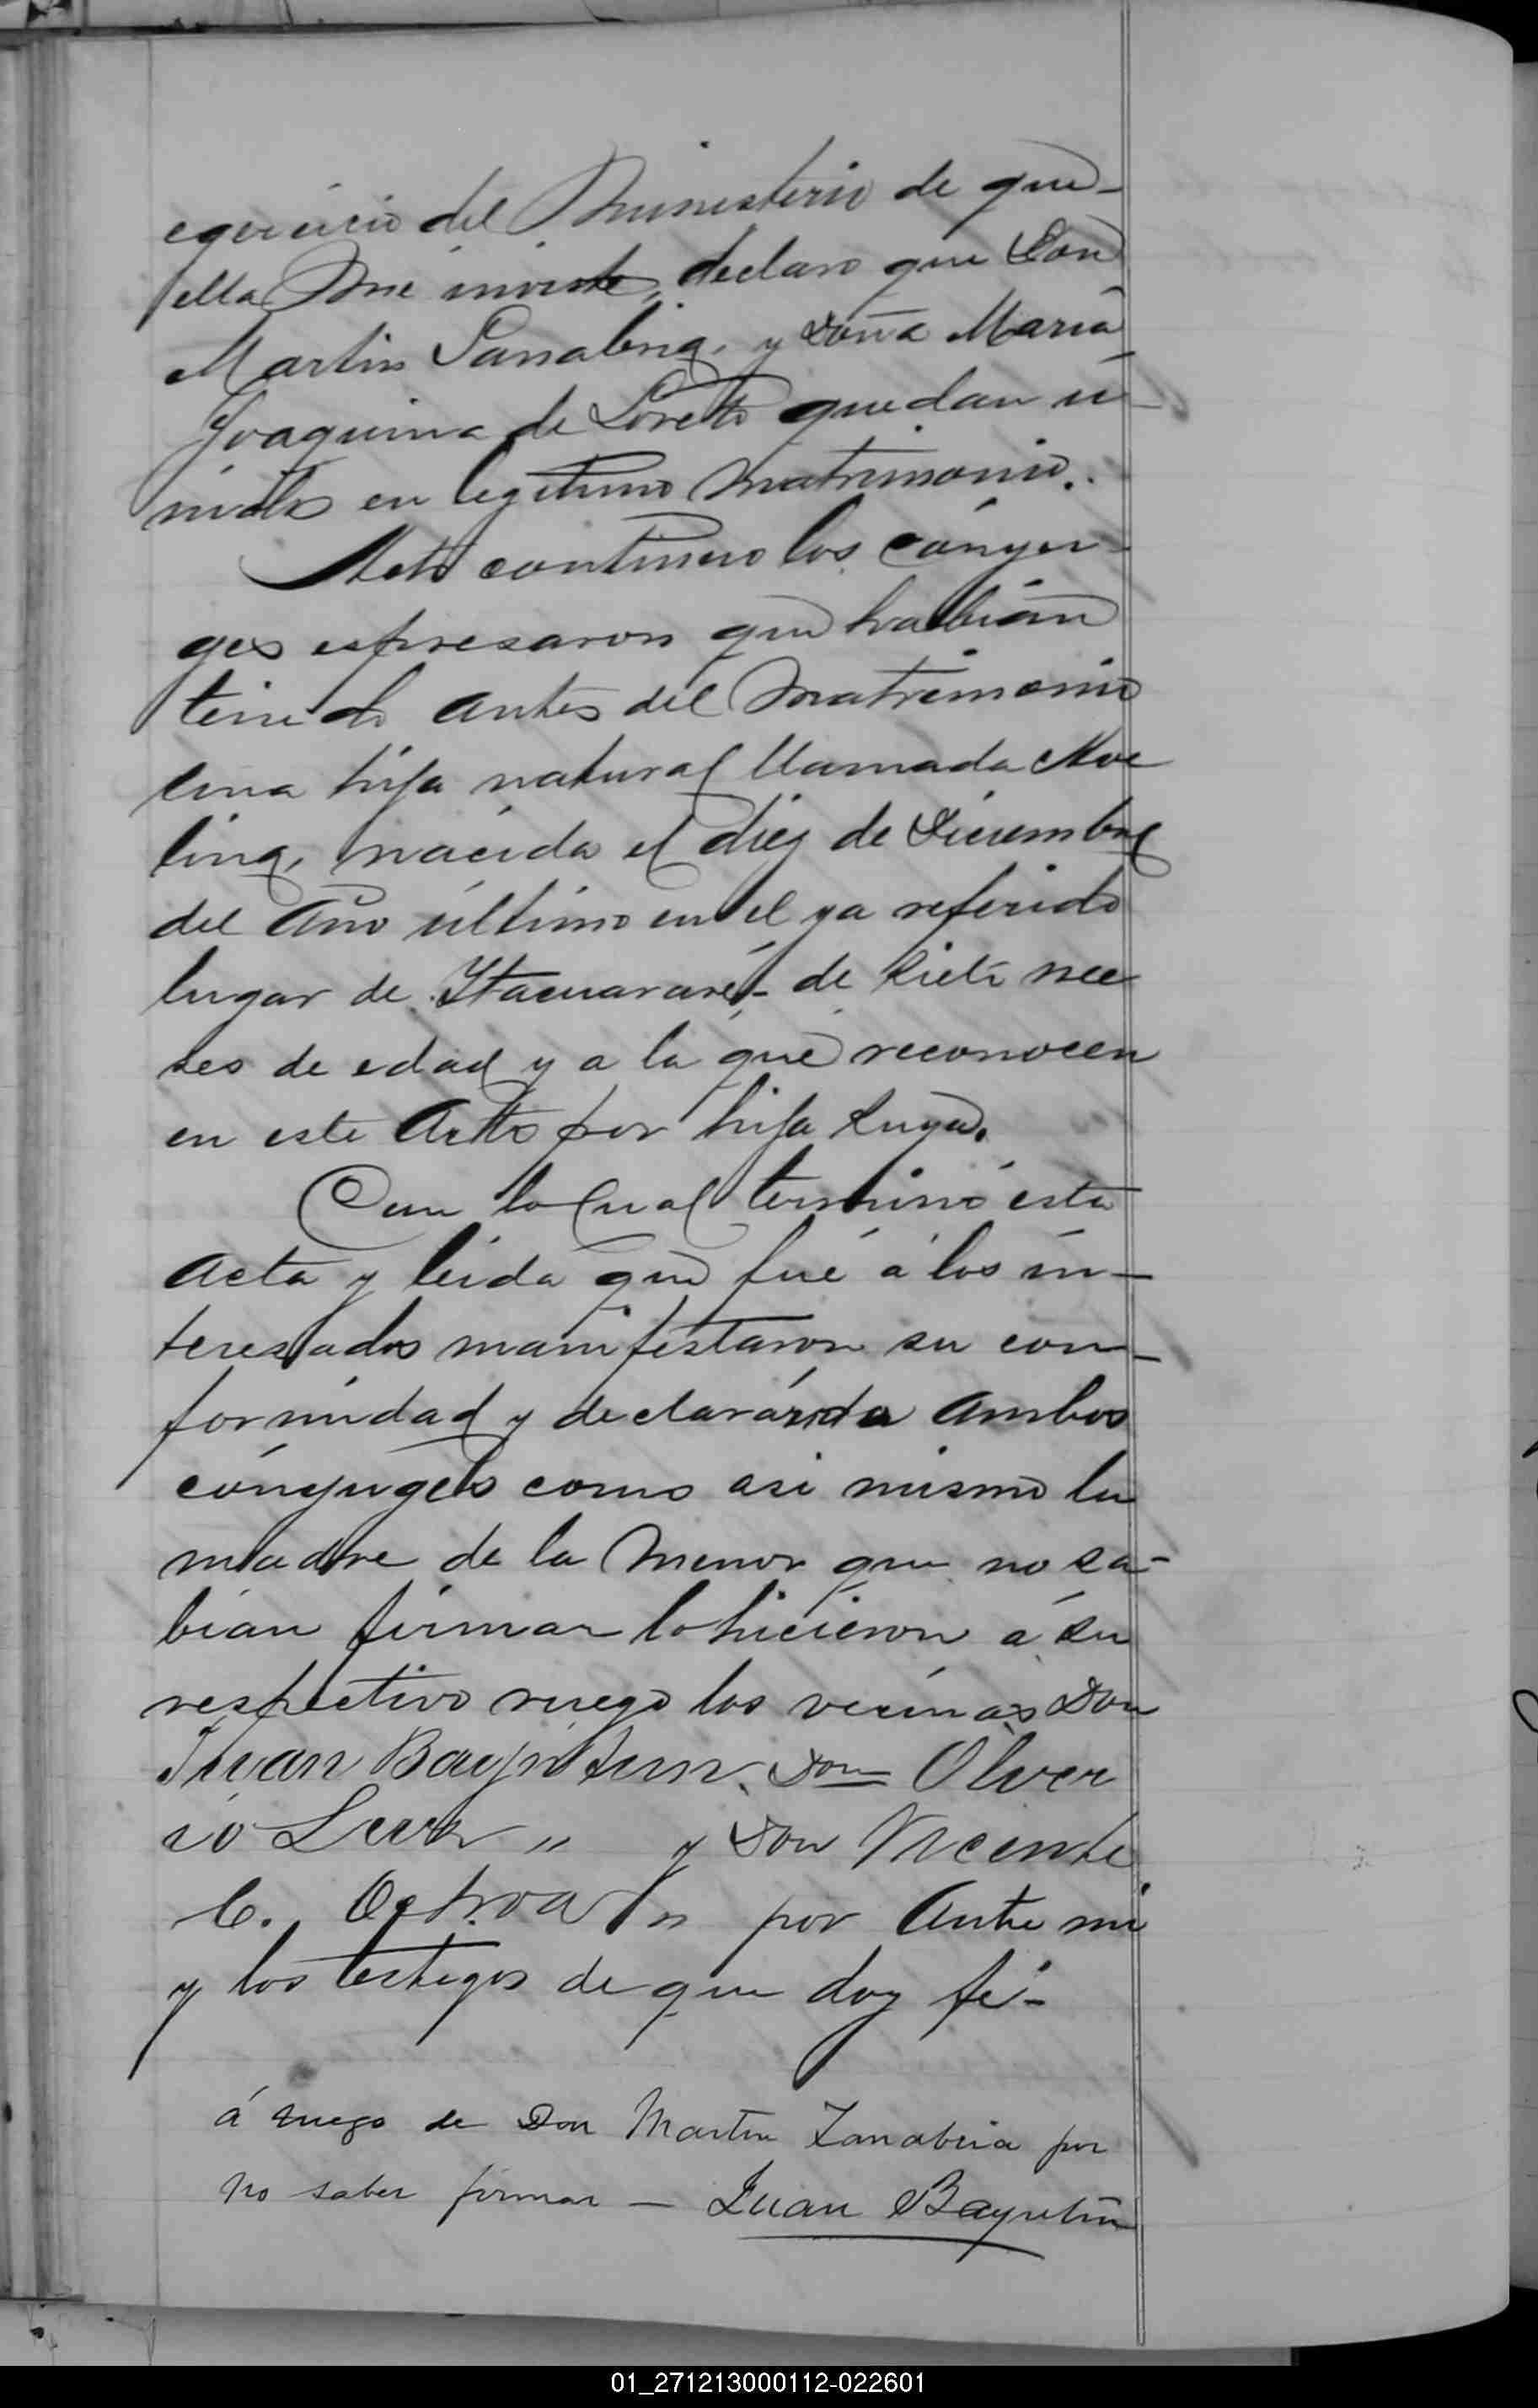 egercicio del Ministerio de que-
ella me inviste, declaro que Don
Martin Sanabria, y Doña María
Joaquina de Loreto quedan u-
nidos en legitimo Matrimonio.
Acto continuo los cónyu-
ges espresaron que habián
tenido antes del Matrimonio
una hija natural llamada
nacida el diez de Diciembre
del Año último en el ya referido
lugar de Itacuararé- de siete me
ses de edad y a la que reconocen
en este Acto por hija suya.
Con lo Cual terminó esta
Acta y leida que fué á los in-
teresados manifestaron su con-
formidad y declarando Ambos
cónyuges como asi mismo la
madre de la Menor que no sa-
bían firmar lo hicieron á su
respectivo ruego los vecinos Don
Juan Don Oliver
io y Don Vicente
C. Ochoa " por Ante mi
y los testigos de que doy fé-
á ruego de Don Martin Zanabria por
No saber firmar — Juan
01_271213000112-022601